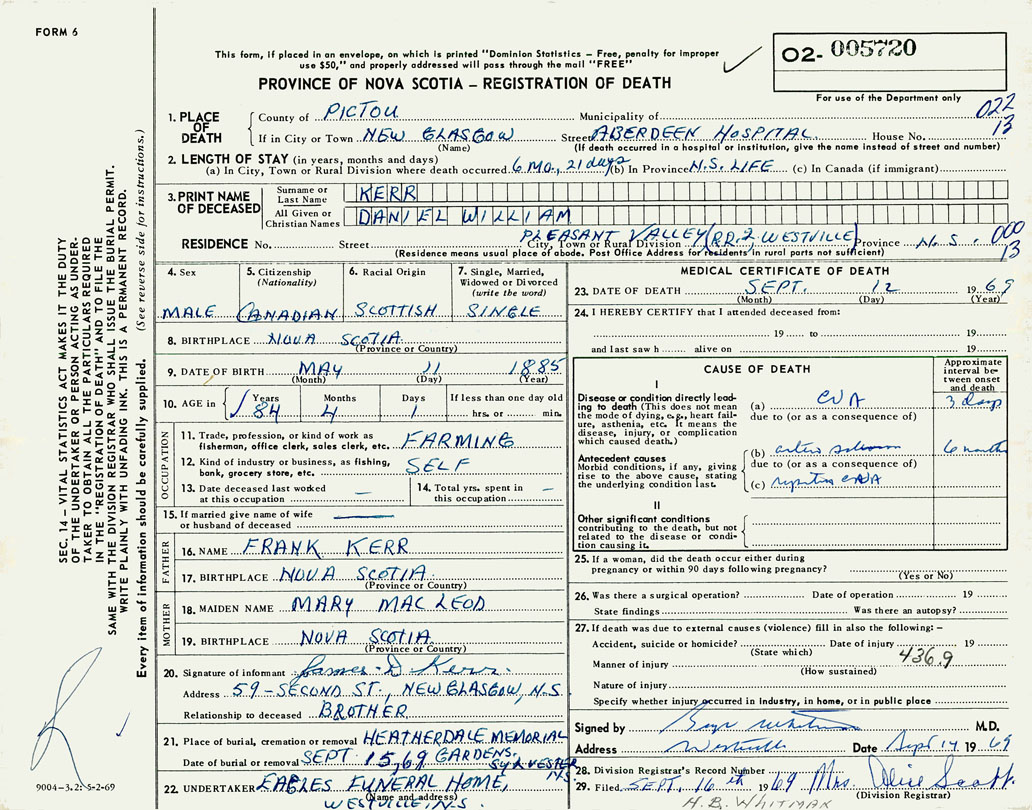 FORM 6
This form, if placed in an envelope, on which is printed "Dominion Statistics – Free, penalty for improper
use $50," and properly addressed will pass through the mail "FREE"
02- 005720
PROVINCE OF NOVA SCOTIA – REGISTRATION OF DEATH
For use of the Department only
1. PLACE OF DEATH
County of PICTOU Municipality of 022
If in City or Town NEW GLASGOW Street ABERDEEN HOSPITAL House No. 13
(Name) (If death occurred in a hospital or institution, give the name instead of street and number)
2. LENGTH OF STAY (in years, months and days)
(a) In City, Town or Rural Division where death occurred 6 MO., 21 days (b) In Province N.S. LIFE (c) In Canada (if immigrant)
3. PRINT NAME OF DECEASED
Surname or Last Name KERR
All Given or Christian Names DANIEL WILLIAM
PLEASANT VALLEY (RR.2, WESTVILLE)
RESIDENCE No. Street City, Town or Rural Division Province N.S. 000
(Residence means usual place of abode. Post Office Address for residents in rural parts not sufficient) 13
4. Sex MALE
5. Citizenship (Nationality) CANADIAN
6. Racial Origin SCOTTISH
7. Single, Married, Widowed or Divorced (write the word) SINGLE
8. BIRTHPLACE NOVA SCOTIA
(Province or Country)
9. DATE OF BIRTH MAY 11 1885
(Month) (Day) (Year)
10. AGE in Years 84 Months 4 Days 1 If less than one day old hrs. or min.
OCCUPATION
11. Trade, profession, or kind of work as
fisherman, office clerk, sales clerk, etc. FARMING
12. Kind of industry or business, as fishing,
bank, grocery store, etc. SELF
13. Date deceased last worked
at this occupation —
14. Total yrs. spent in
this occupation —
15. If married give name of wife
or husband of deceased —
FATHER
16. NAME FRANK KERR
17. BIRTHPLACE NOVA SCOTIA
(Province or Country)
MOTHER
18. MAIDEN NAME MARY MAC LEOD
19. BIRTHPLACE NOVA SCOTIA
(Province or Country)
20. Signature of informant James D Kerr
Address 59-SECOND ST., NEW GLASGOW, N.S.
Relationship to deceased BROTHER
21. Place of burial, cremation or removal HEATHERDALE MEMORIAL
GARDENS, SYLVESTER N.S.
Date of burial or removal SEPT 15, 69
22. UNDERTAKER EAGLES FUNERAL HOME,
(Name and address)
WESTVILLE, N.S.
MEDICAL CERTIFICATE OF DEATH
23. DATE OF DEATH SEPT. 12 1969
(Month) (Day) (Year)
24. I HEREBY CERTIFY that I attended deceased from:
19 to 19
and last saw h alive on 19
CAUSE OF DEATH
Approximate interval between onset and death
I
Disease or condition directly leading
to death (This does not mean
the mode of dying, e.g., heart failure,
asthenia, etc. It means the
disease, injury, or complication
which caused death.)
(a) CVA 3 days
due to (or as a consequence of)
Antecedent causes
Morbid conditions, if any, giving
rise to the above cause, stating
the underlying condition last.
(b) arterio 6 months
due to (or as a consequence of)
(c) CVA
II
Other significant conditions
contributing to the death, but not
related to the disease or condition
causing it.
25. If a woman, did the death occur either during
pregnancy or within 90 days following pregnancy?
(Yes or No)
26. Was there a surgical operation? Date of operation 19
State findings Was there an autopsy?
27. If death was due to external causes (violence) fill in also the following: –
Accident, suicide or homicide? Date of injury 19
(State which) 436.9
Manner of injury
(How sustained)
Nature of injury
Specify whether injury occurred in Industry, in home, or in public place
Signed by M.D.
Address Westville Date Sept 14 1969
28. Division Registrar's Record Number
29. Filed SEPT. 16th 1969 Mrs. Alice Scott
(Division Registrar)
H.B. WHITMAN
SEC. 14 – VITAL STATISTICS ACT MAKES IT THE DUTY
OF THE UNDERTAKER OR PERSON ACTING AS UNDERTAKER
TO OBTAIN ALL THE PARTICULARS REQUIRED
IN THE "REGISTRATION OF DEATH" AND TO FILE THE
SAME WITH THE DIVISION REGISTRAR WHO SHALL ISSUE THE BURIAL PERMIT.
WRITE PLAINLY WITH UNFADING INK. THIS IS A PERMANENT RECORD.
Every item of information should be carefully supplied. (See reverse side for instructions.)
9004-3.2: 5-2-69